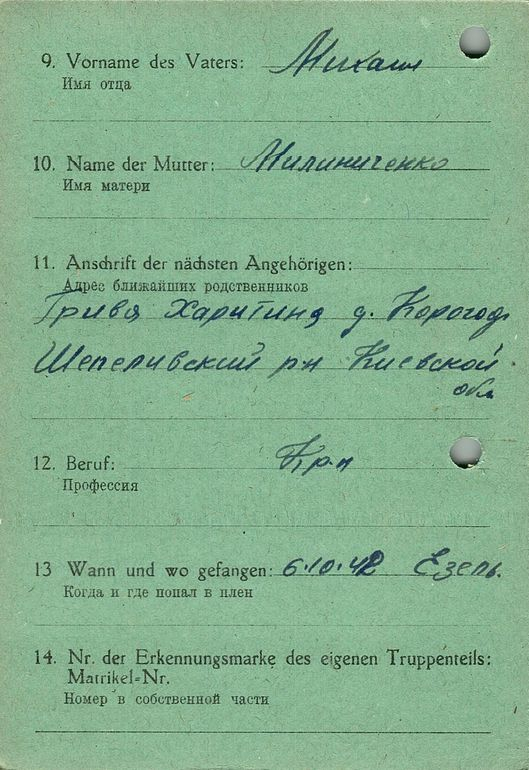 9. Vorname des Vaters: Михаил
Имя отца
10. Name der Mutter: Милиниченко
Имя матери
11. Anschrift der nächsten Angehörigen:
Адрес ближайших родственников
Грива Харитина д. Корогод
Шепеливский рн Киевской
обл
12. Beruf: Кр-н
Профессия
13 Wann und wo gefangen: 6.10.42 Езель.
Когда и где попал в плен
14. Nr. der Erkennungsmarke des eigenen Truppenteils:
Matrikel-Nr.
Номер в собственной части